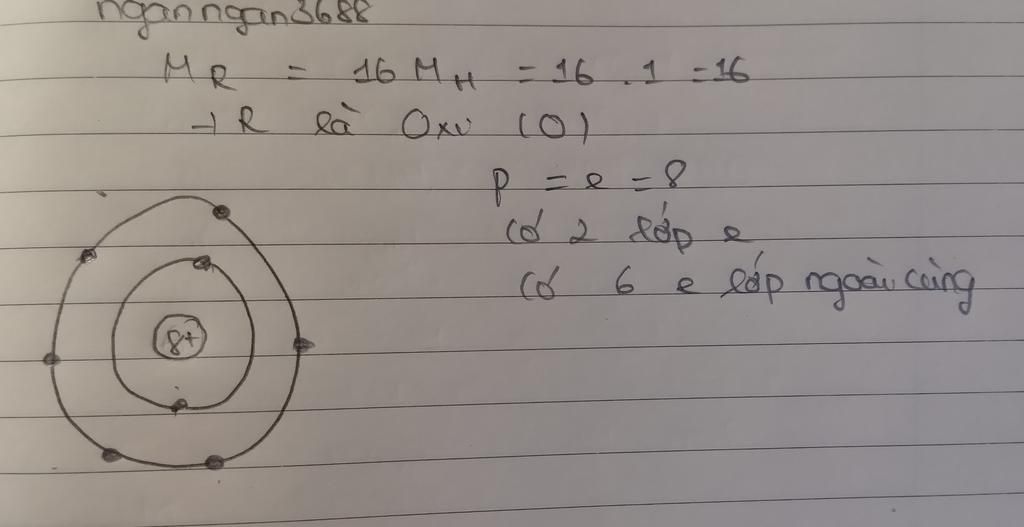 nganngan3688
M_R = 16 M_H = 16 . 1 = 16
→ R là Oxi (O)
p = e = 8
Có 2 lớp e
Có 6 e lớp ngoài cùng
8+